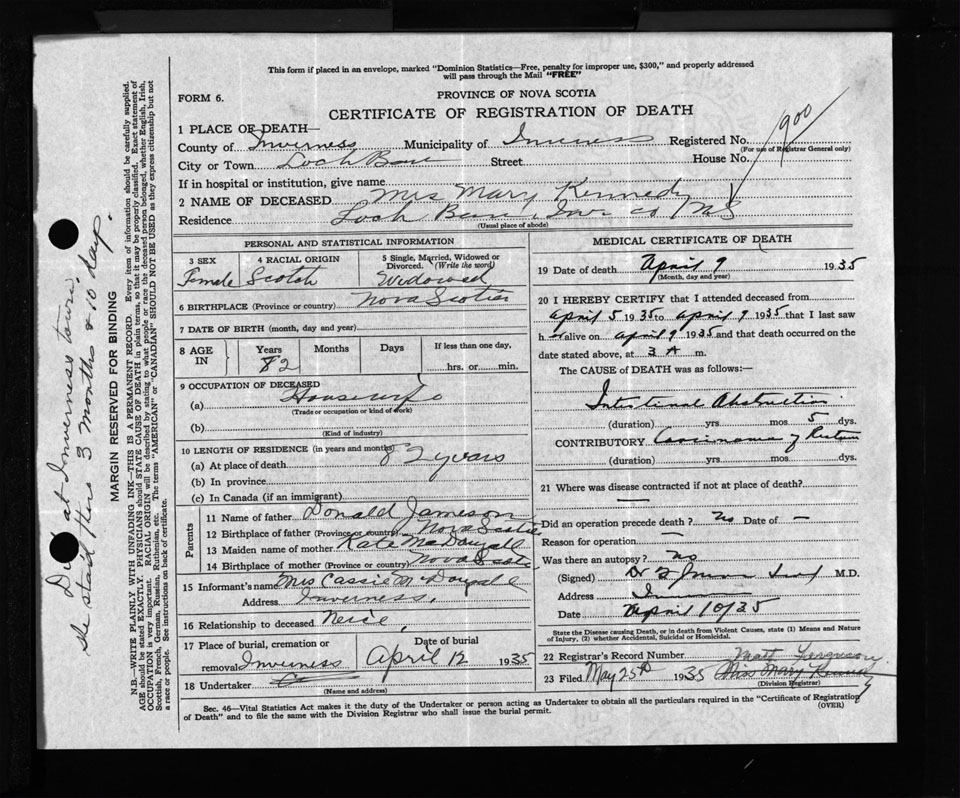 This form if placed in an envelope, marked "Dominion Statistics—Free, penalty for improper use, $300," and properly addressed
will pass through the Mail "FREE"
FORM 6.
PROVINCE OF NOVA SCOTIA
CERTIFICATE OF REGISTRATION OF DEATH
1900
1 PLACE OF DEATH—
County of Inverness Municipality of Inverness Registered No.
(For use of Registrar General only)
City or Town Loch Ban Street House No.
If in hospital or institution, give name
2 NAME OF DECEASED Mrs Mary Kennedy
Residence Loch Ban, Inv co N S
(Usual place of abode)
PERSONAL AND STATISTICAL INFORMATION
3 SEX 4 RACIAL ORIGIN 5 Single, Married, Widowed or
Divorced. (Write the word)
Female Scotch Widowed
6 BIRTHPLACE (Province or country) Nova Scotia
7 DATE OF BIRTH (month, day and year)
8 AGE IN Years Months Days If less than one day,
82 hrs. or min.
9 OCCUPATION OF DECEASED
(a) Housewife
(Trade or occupation or kind of work)
(b)
(Kind of industry)
10 LENGTH OF RESIDENCE (in years and months)
(a) At place of death 82 years
(b) In province
(c) In Canada (if an immigrant)
Parents
11 Name of father Donald Jameson
12 Birthplace of father (Province or country) Nova Scotia
13 Maiden name of mother Kate McDougall
14 Birthplace of mother (Province or country) Nova Scotia
15 Informant's name Mrs Cassie McDougall
Address Inverness,
16 Relationship to deceased Neice,
17 Place of burial, cremation or Date of burial
removal Inverness April 12 1935
18 Undertaker
(Name and address)
MEDICAL CERTIFICATE OF DEATH
19 Date of death April 9 1935
(Month, day and year)
20 I HEREBY CERTIFY that I attended deceased from
April 5 1935 to April 9 1935 that I last saw
h er alive on April 9 1935 and that death occurred on the
date stated above, at 3 A m.
The CAUSE of DEATH was as follows:—
Intestinal Obstruction
(duration) yrs. mos. 5 dys.
CONTRIBUTORY Carcinoma of Rectum
(duration) yrs. mos. dys.
21 Where was disease contracted if not at place of death?
—
Did an operation precede death? No Date of —
Reason for operation —
Was there an autopsy? No
(Signed) Dr M.D.
Address
Date April 10/35
State the Disease causing Death, or in death from Violent Causes, state (1) Means and Nature
of Injury, (2) whether Accidental, Suicidal or Homicidal.
22 Registrar's Record Number Matt Ferguson
23 Filed May 25th 1935 Miss Mary Kennedy
(Division Registrar)
Sec. 46—Vital Statistics Act makes it the duty of the Undertaker or person acting as Undertaker to obtain all the particulars required in the "Certificate of Registration
of Death" and to file the same with the Division Registrar who shall issue the burial permit.
(OVER)
Died at Inverness town,
She staid there 3 months & 10 days.
MARGIN RESERVED FOR BINDING
N.B.—WRITE PLAINLY WITH UNFADING INK—THIS IS A PERMANENT RECORD. Every item of information should be carefully supplied.
AGE should be stated EXACTLY. PHYSICIANS should STATE CAUSE OF DEATH in plain terms, so that it may be properly classified. Exact statement of
OCCUPATION is very important. RACIAL ORIGIN will be described by stating to what people or race the deceased person belonged, whether English, Irish,
Scottish, French, German, Russian, Ruthenian, etc. The terms "AMERICAN" or "CANADIAN" SHOULD NOT BE USED as they express citizenship but not
a race or people. See instructions on back of certificate.